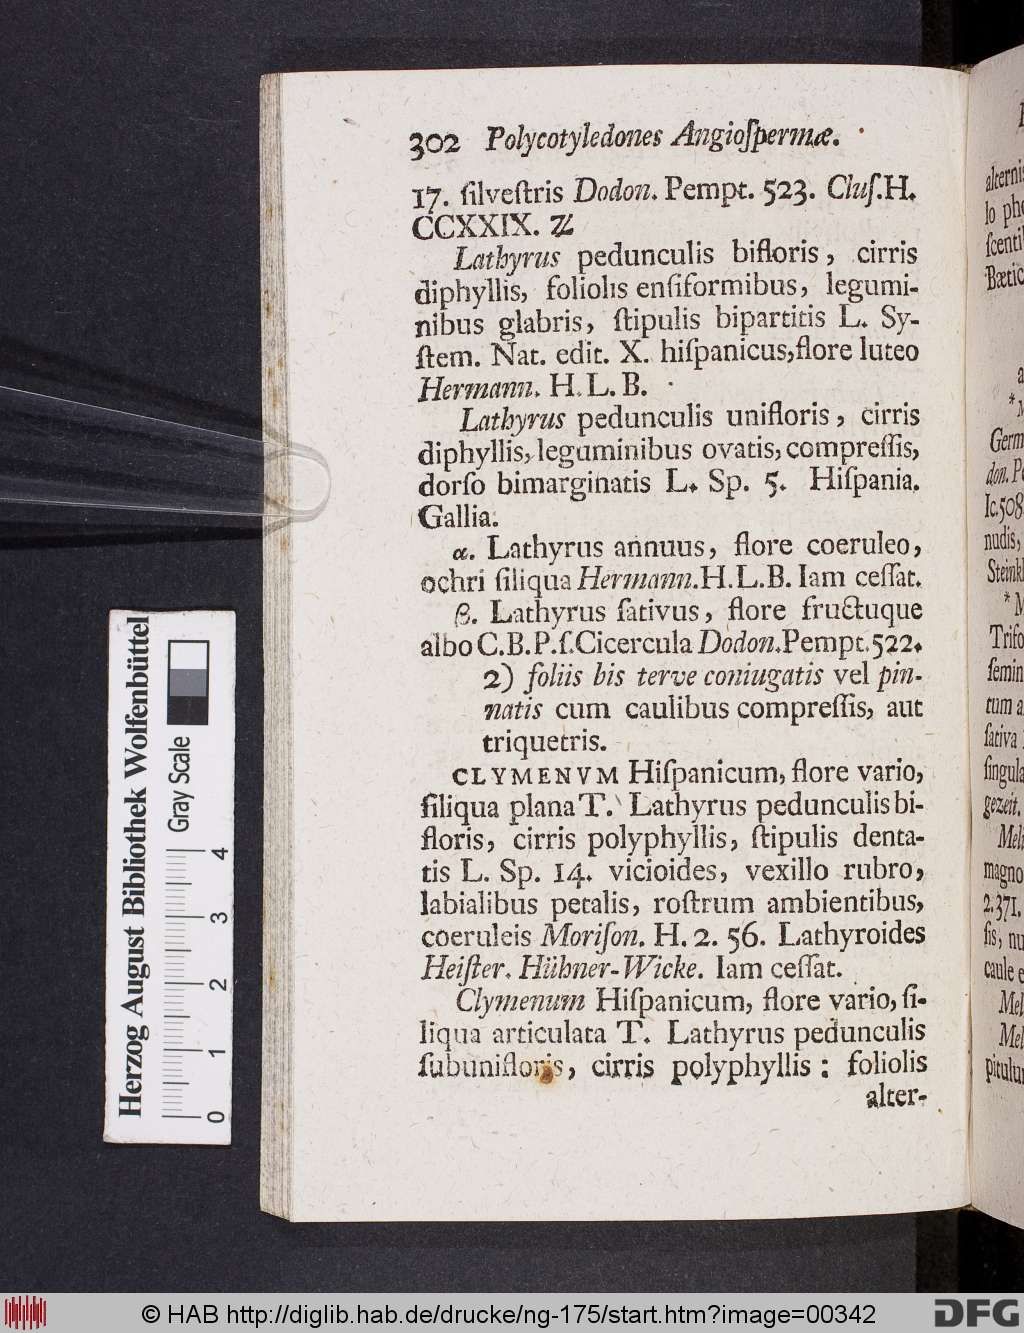 302 Polycotyledones Angioſpermæ.
17. ſilveſtris Dodon. Pempt. 523. Cluſ.H.
CCXXIX. ♃
Lathyrus pedunculis bifloris, cirris
diphyllis, foliolis enſiformibus, legumi-
nibus glabris, ſtipulis bipartitis L. Sy-
ſtem. Nat. edit. X. hiſpanicus, flore luteo
Hermann. H. L. B.
Lathyrus pedunculis unifloris, cirris
diphyllis, leguminibus ovatis, compreſſis,
dorſo bimarginatis L. Sp. 5. Hiſpania.
Gallia.
α. Lathyrus annuus, flore coeruleo,
ochri ſiliqua Hermann. H. L. B. Iam ceſſat.
β. Lathyrus ſativus, flore fructuque
albo C. B. P. ſ. Cicercula Dodon. Pempt. 522.
2) foliis bis terve coniugatis vel pin-
natis cum caulibus compreſſis, aut
triquetris.
CLYMENVM Hiſpanicum, flore vario,
ſiliqua plana T. Lathyrus pedunculis bi-
floris, cirris polyphyllis, ſtipulis denta-
tis L. Sp. 14. vicioides, vexillo rubro,
labialibus petalis, roſtrum ambientibus,
coeruleis Moriſon. H. 2. 56. Lathyroides
Heiſter. Hühner-Wicke. Iam ceſſat.
Clymenum Hiſpanicum, flore vario, ſi-
liqua articulata T. Lathyrus pedunculis
ſubunifloris, cirris polyphyllis: foliolis
alter-
alternis
lo
ſcenti
Bætic
Germ
don.
Ic. 508
nudis,
Steinkl
Trifo
ſemin
tum a
ſativa
ſingula
gezeit.
magno
2. 371.
ſis, nu
caule
pitulu
Herzog August Bibliothek Wolfenbüttel
Gray Scale
0 1 2 3 4
© HAB http://diglib.hab.de/drucke/ng-175/start.htm?image=00342
DFG